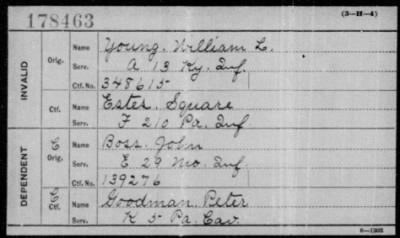 178463
(3-11-4)
INVALID
Orig.
Name Young, William L.
Serv. A 13 Ky. Inf.
Ctf. No. 348615
Ctf.
Name Estes, Square
Serv. F 210 Pa. Inf
DEPENDENT
C
Orig.
Name Boss, John
Serv. E 29 Mo. Inf
Ctf. No. 139276
C
Ctf.
Name Goodman, Peter
Serv. K 5 Pa. Cav.